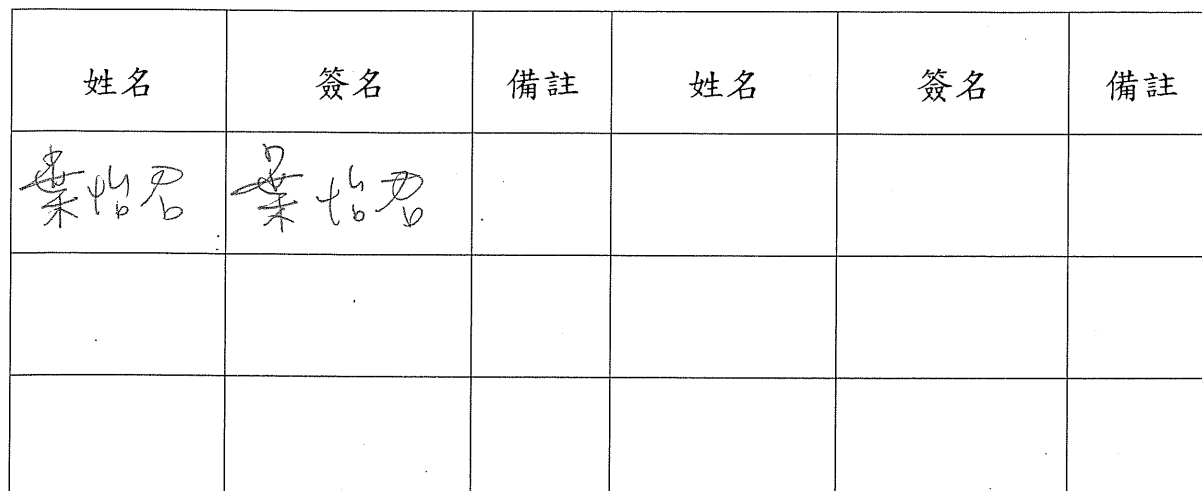 姓名 簽名 備註 姓名 簽名 備註
葉怡君 葉怡君